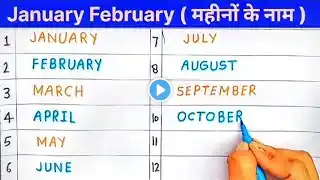 January February ( महीनों के नाम )
1 JANUARY 7 JULY
2 FEBRUARY 8 AUGUST
3 MARCH 9 SEPTEMBER
4 APRIL 10 OCTOBER
5 MAY 11
6 JUNE 12